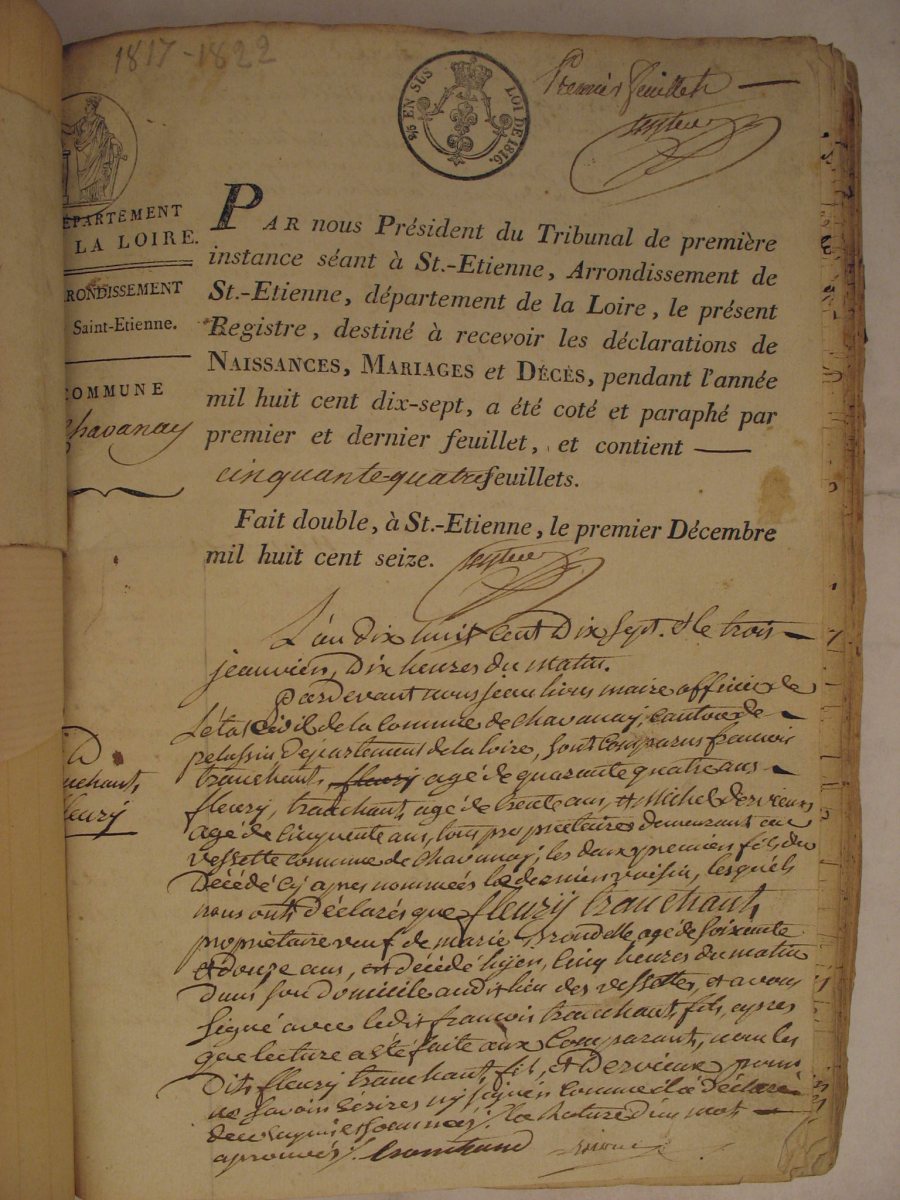 1817-1822
EN SUS
LOI DE 1816.
Premier feuillet
ÉPARTEMENT
LA LOIRE.
RONDISSEMENT
Saint-Etienne.
OMMUNE
Chavanay
PAR nous Président du Tribunal de première
instance séant à St.-Etienne, Arrondissement de
St.-Etienne, département de la Loire, le présent
Registre, destiné à recevoir les déclarations de
NAISSANCES, MARIAGES et DÉCÈS, pendant l'année
mil huit cent dix-sept, a été coté et paraphé par
premier et dernier feuillet, et contient —
cinquante-quatre feuillets.
Fait double, à St.-Etienne, le premier Décembre
mil huit cent seize.
L'an dix huit cent dix sept. & le trois
jeanvier, dix heures du matin.
pardevant nous jean maire officier de
L'état Civil de la Commune de Chavanay, canton de
pelussin, Département de la loire, sont comparus francois
tranchant, fleury agé de quarante quatre ans
fleury, tranchant, agé de trente ans, et Michel dervieux
agé de cinquente ans, tous propriétaires demeurant au
vessette commune de chavanay; les deux premiers fils du
Décédé cy apres nommées le dernier voisin, lesquels
nous onts déclarés que fleury tranchant,
propriétaire veuf de marie Brondelle agé de soixante
et douze ans, est décédé hyer, cinq heures du matin
dans son domicile au dit lieu des vessettes, et avons
signé avec ledit francois tranchant fils, apres
que lecture a été faite aux comparant, non les
dits fleury tranchant fil, et Dervieux pour
ne savoir Ecrires ny signer comme il a déclaré
de ce enquis et sommés. La rature d'un mot
aprouvés.
uchant,
leury